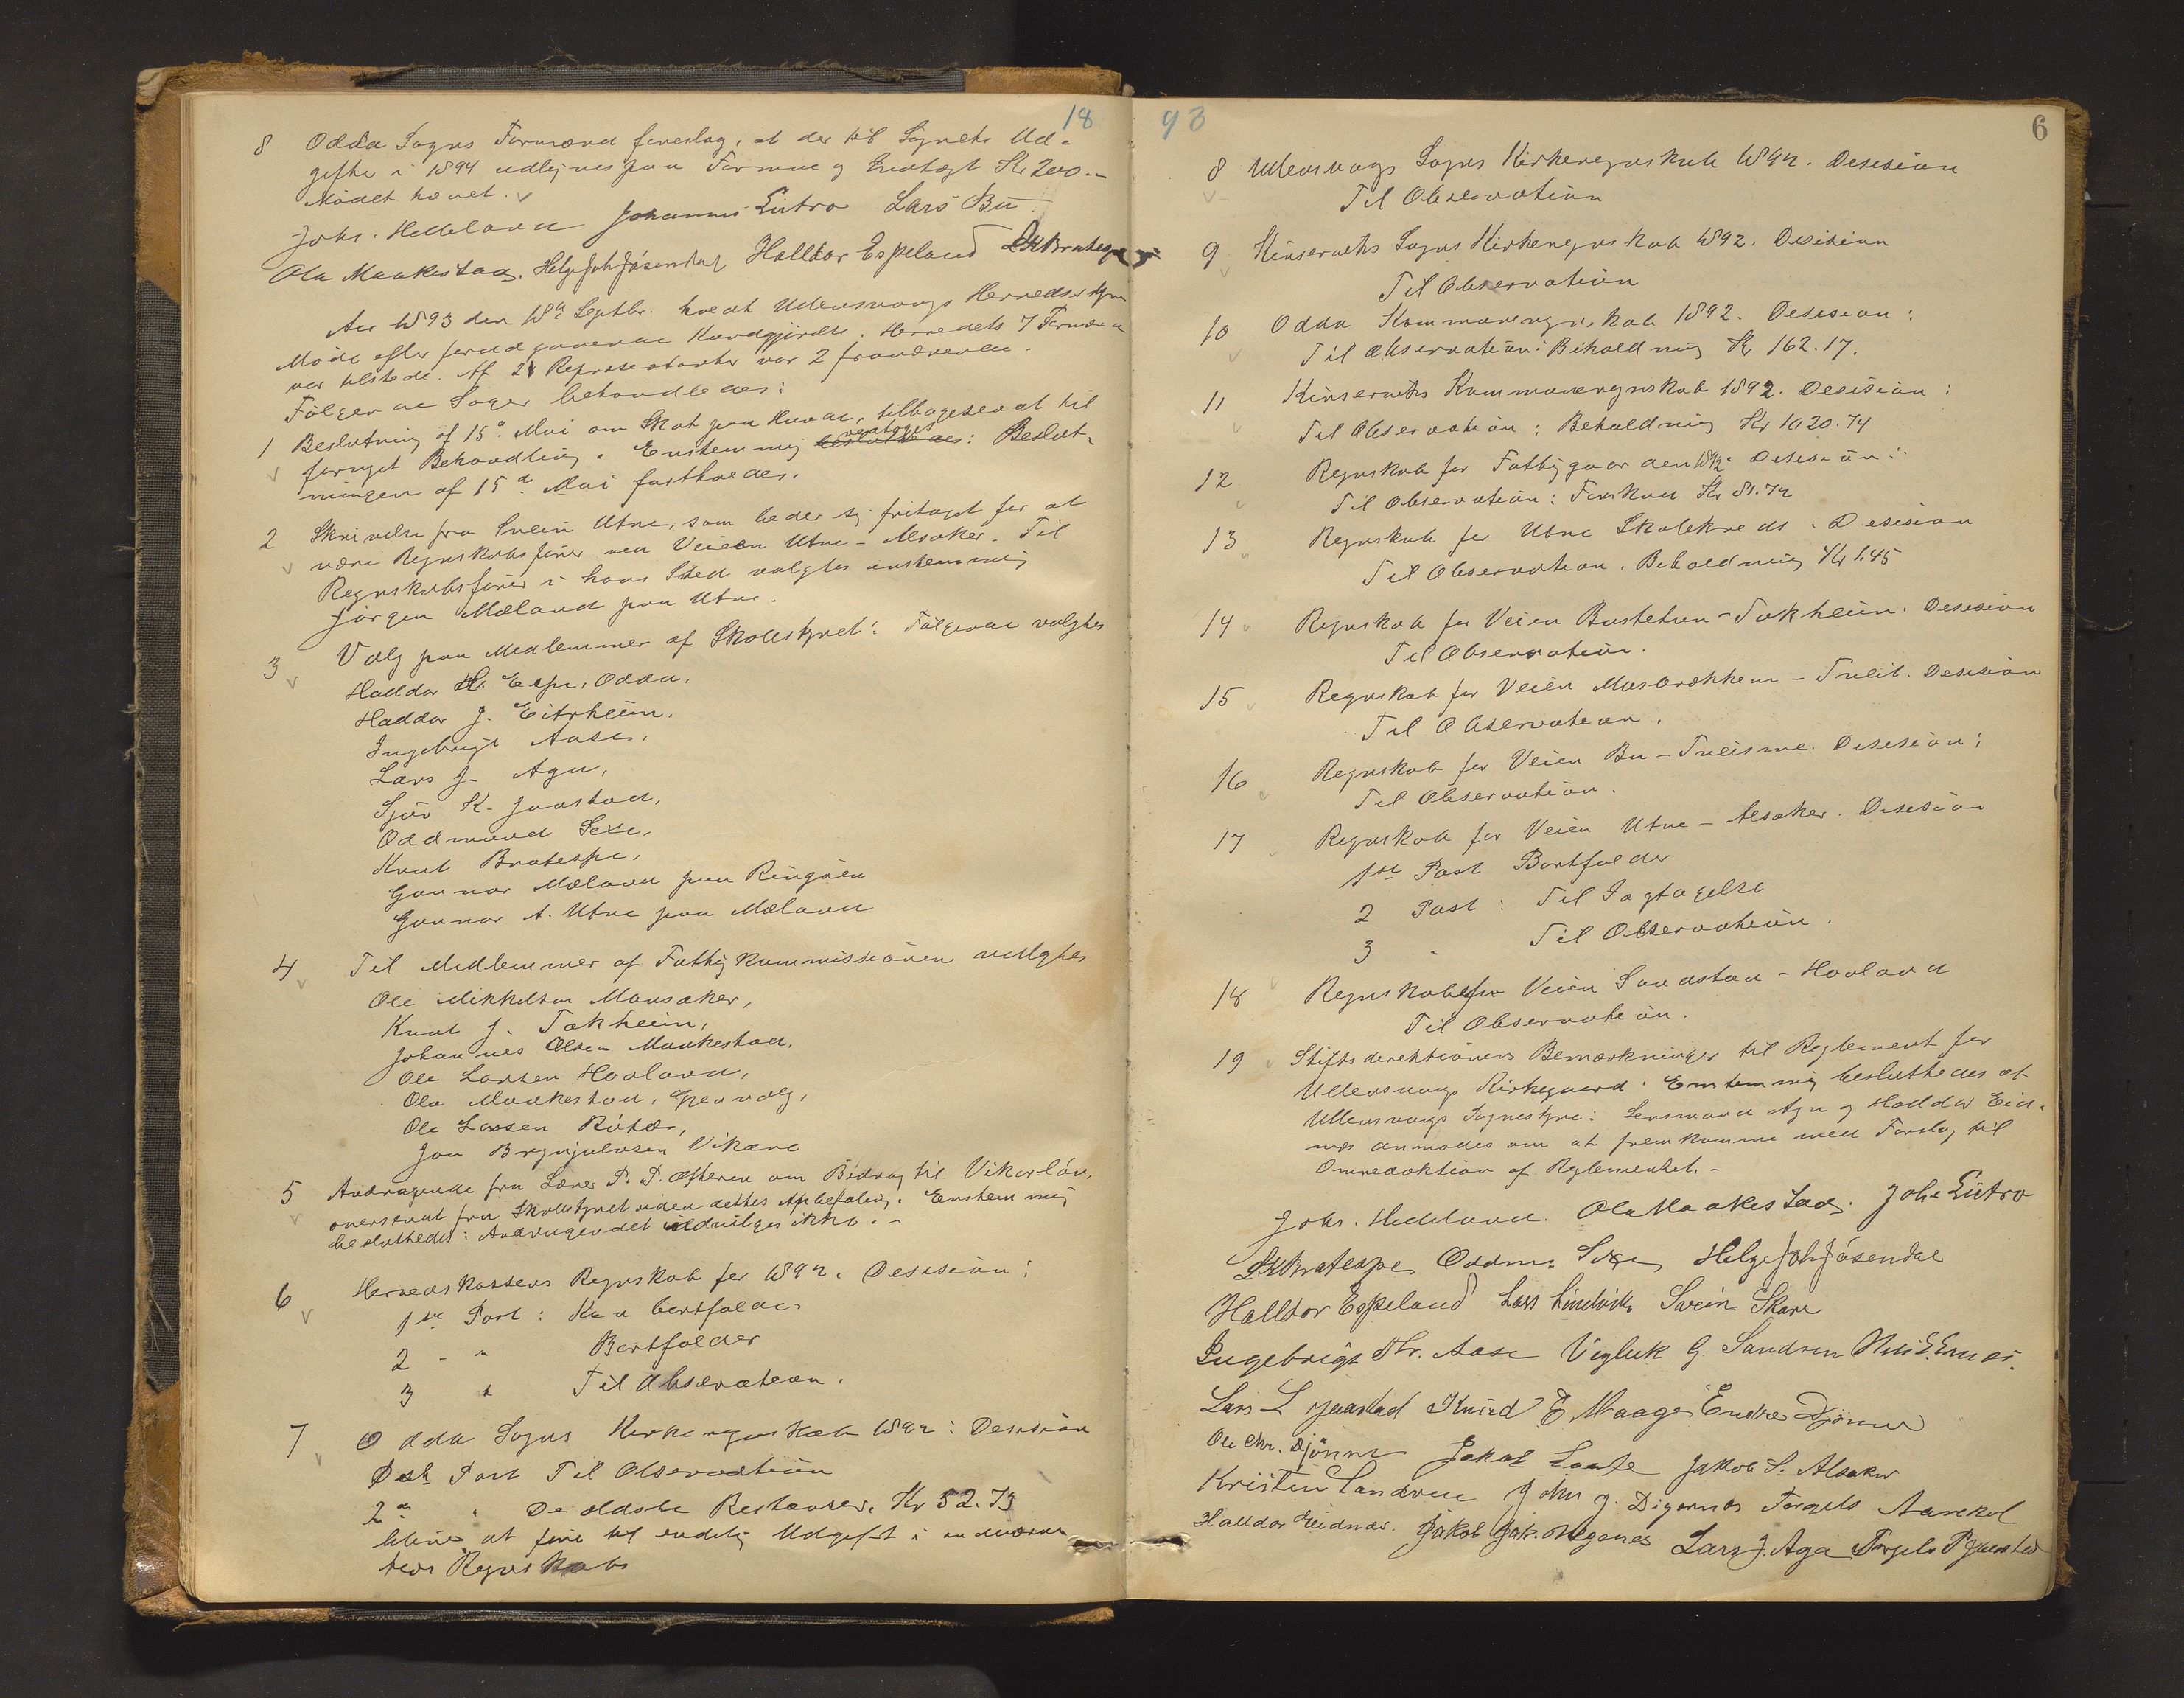 18
8 Odda Sogns Formænd foreslog, at der til Sognets Ud-
gifter i 1894 udlignes paa Formue og Indtægt Kr 200.-
Mødet hævet.
Johs. Helleland Johannes Eitro Lars Bu
Ola Maakestad. Helge Joh Jösendal Halldor Espeland LK Bratespe
Aar 1893 den 18de Septbr. holdt Ullensvangs Herredsstyre
Møde efter forudgaaende Kundgjørelse. Herredets 7 Formænd
var tilstede. Af 21 Repræsentanter var 2 fraværende.
Følgende Sager behandledes:
1 Beslutning af 15de Mai om Skat paa Hunde, tilbagesendt til
fornyet Behandling. Enstemmig vedtoges: Beslut-
ningen af 15de Mai fastholdes.
2 Skrivelse fra Svein Utne, som beder sig fritaget for at
være Regnskabsfører ved Veien Utne - Alsaker. Til
Regnskabsfører i hans Sted valgtes enstemmig
Jørgen Mæland paa Utne.
3 Valg paa Medlemmer af Skolestyret: Følgende valgtes
Haldor H. Espe, Odda,
Haldor J. Eitrheim,
Ingebrigt Aase,
Lars J. Aga,
Sjur K. Jaastad,
Oddmund Sexe,
Knut Bratespe,
Gunnar Mæland paa Ringøen
Gunnar A. Utne paa Mæland
4 Til Medlemmer af Fattigkommissionen valgtes
Ole Mikkelsen Mansaker,
Knut J. Tokheim,
Johannes Olsen Maakestad,
Ole Larsen Hovland,
Ola Maakestad, Gjenvalg,
Ole Larsen
Jon Brynjulvsen Vikane
5 Andragende fra Lærer P. P. om Bidrag til Vikarløn,
oversendt fra Skolestyret uden dettes Anbefaling. Enstemmig
besluttedes: Andragendet indvilges ikke. -
6 Herredskassens Regnskab for 1892. Desision:
1ste Post: Kan bortfalde.
2 - " Bortfalder
3 " Til Observation.
7 Odda Sogns Kirkeregnskab 1892: Desision
1ste Post Til Observation
2den " De ældste Restanser, Kr 52.73
blive at føre til endelig Udgift i indeværen-
des Regnskab
93
6
8 Ullensvangs Sogns Kirkeregnskab 1892. Desision
Til Observation
9 Kinserviks Sogns Kirkeregnskab 1892. Desision
Til Observation
10 Odda Kommuneregnskab 1892. Desision:
Til Observation: Beholdning Kr 162.17.
11 Kinserviks Kommuneregnskab 1892. Desision:
Til Observation: Beholdning Kr 1020.74
12 Regnskab for Fattiggaarden 1892 Desision:
Til Observation: Forskud Kr 81.72
13 Regnskab for Utne Skolekreds. Desision
Til Observation. Beholdning Kr 1.45
14 Regnskab for Veien Bustetun - Tokheim. Desision
Til Observation.
15 Regnskab for Veien Maabrækkene - Tveit. Desision
Til Observation.
16 Regnskab for Veien Bu - Tveisme. Desision:
Til Observation.
17 Regnskab for Veien Utne - Alsaker. Desision
1ste Post Bortfalder
2 Post: Til Iagtagelse
3 " Til Observation.
18 Regnskab for Veien Sandstad - Hovland
Til Observation.
19 Stiftsdirektionens Bemærkninger til Reglement for
Ullensvangs Kirkegaard. Enstemmig besluttedes af
Ullensvangs Sognestyre: Lensmand Aga og Halldor Eid-
næs anmodes om at fremkomme med Forslag til
Omredaktion af Reglementet. -
Johs. Helleland. Ola Maakestad. Johs Eitro
LK Bratespe Oddm. Sexe Helge Joh Jösendal
Halldor Espeland Lars Lindvik Svein Skare
Ingebrigt Th. Aase Vigluk G. Sandven Nils E. Ernes.
Lars L Jaastad Knud E Maage Endre Djønne
Ole Chr. Djönne Jakob Laate Jakob S. Alsaker
Kristen Sandven John J. Digernes Torgels Aarekol
Halldor Eidnæs. Jakob Jak. Meganes Lars J. Aga Torgels P Jaastad